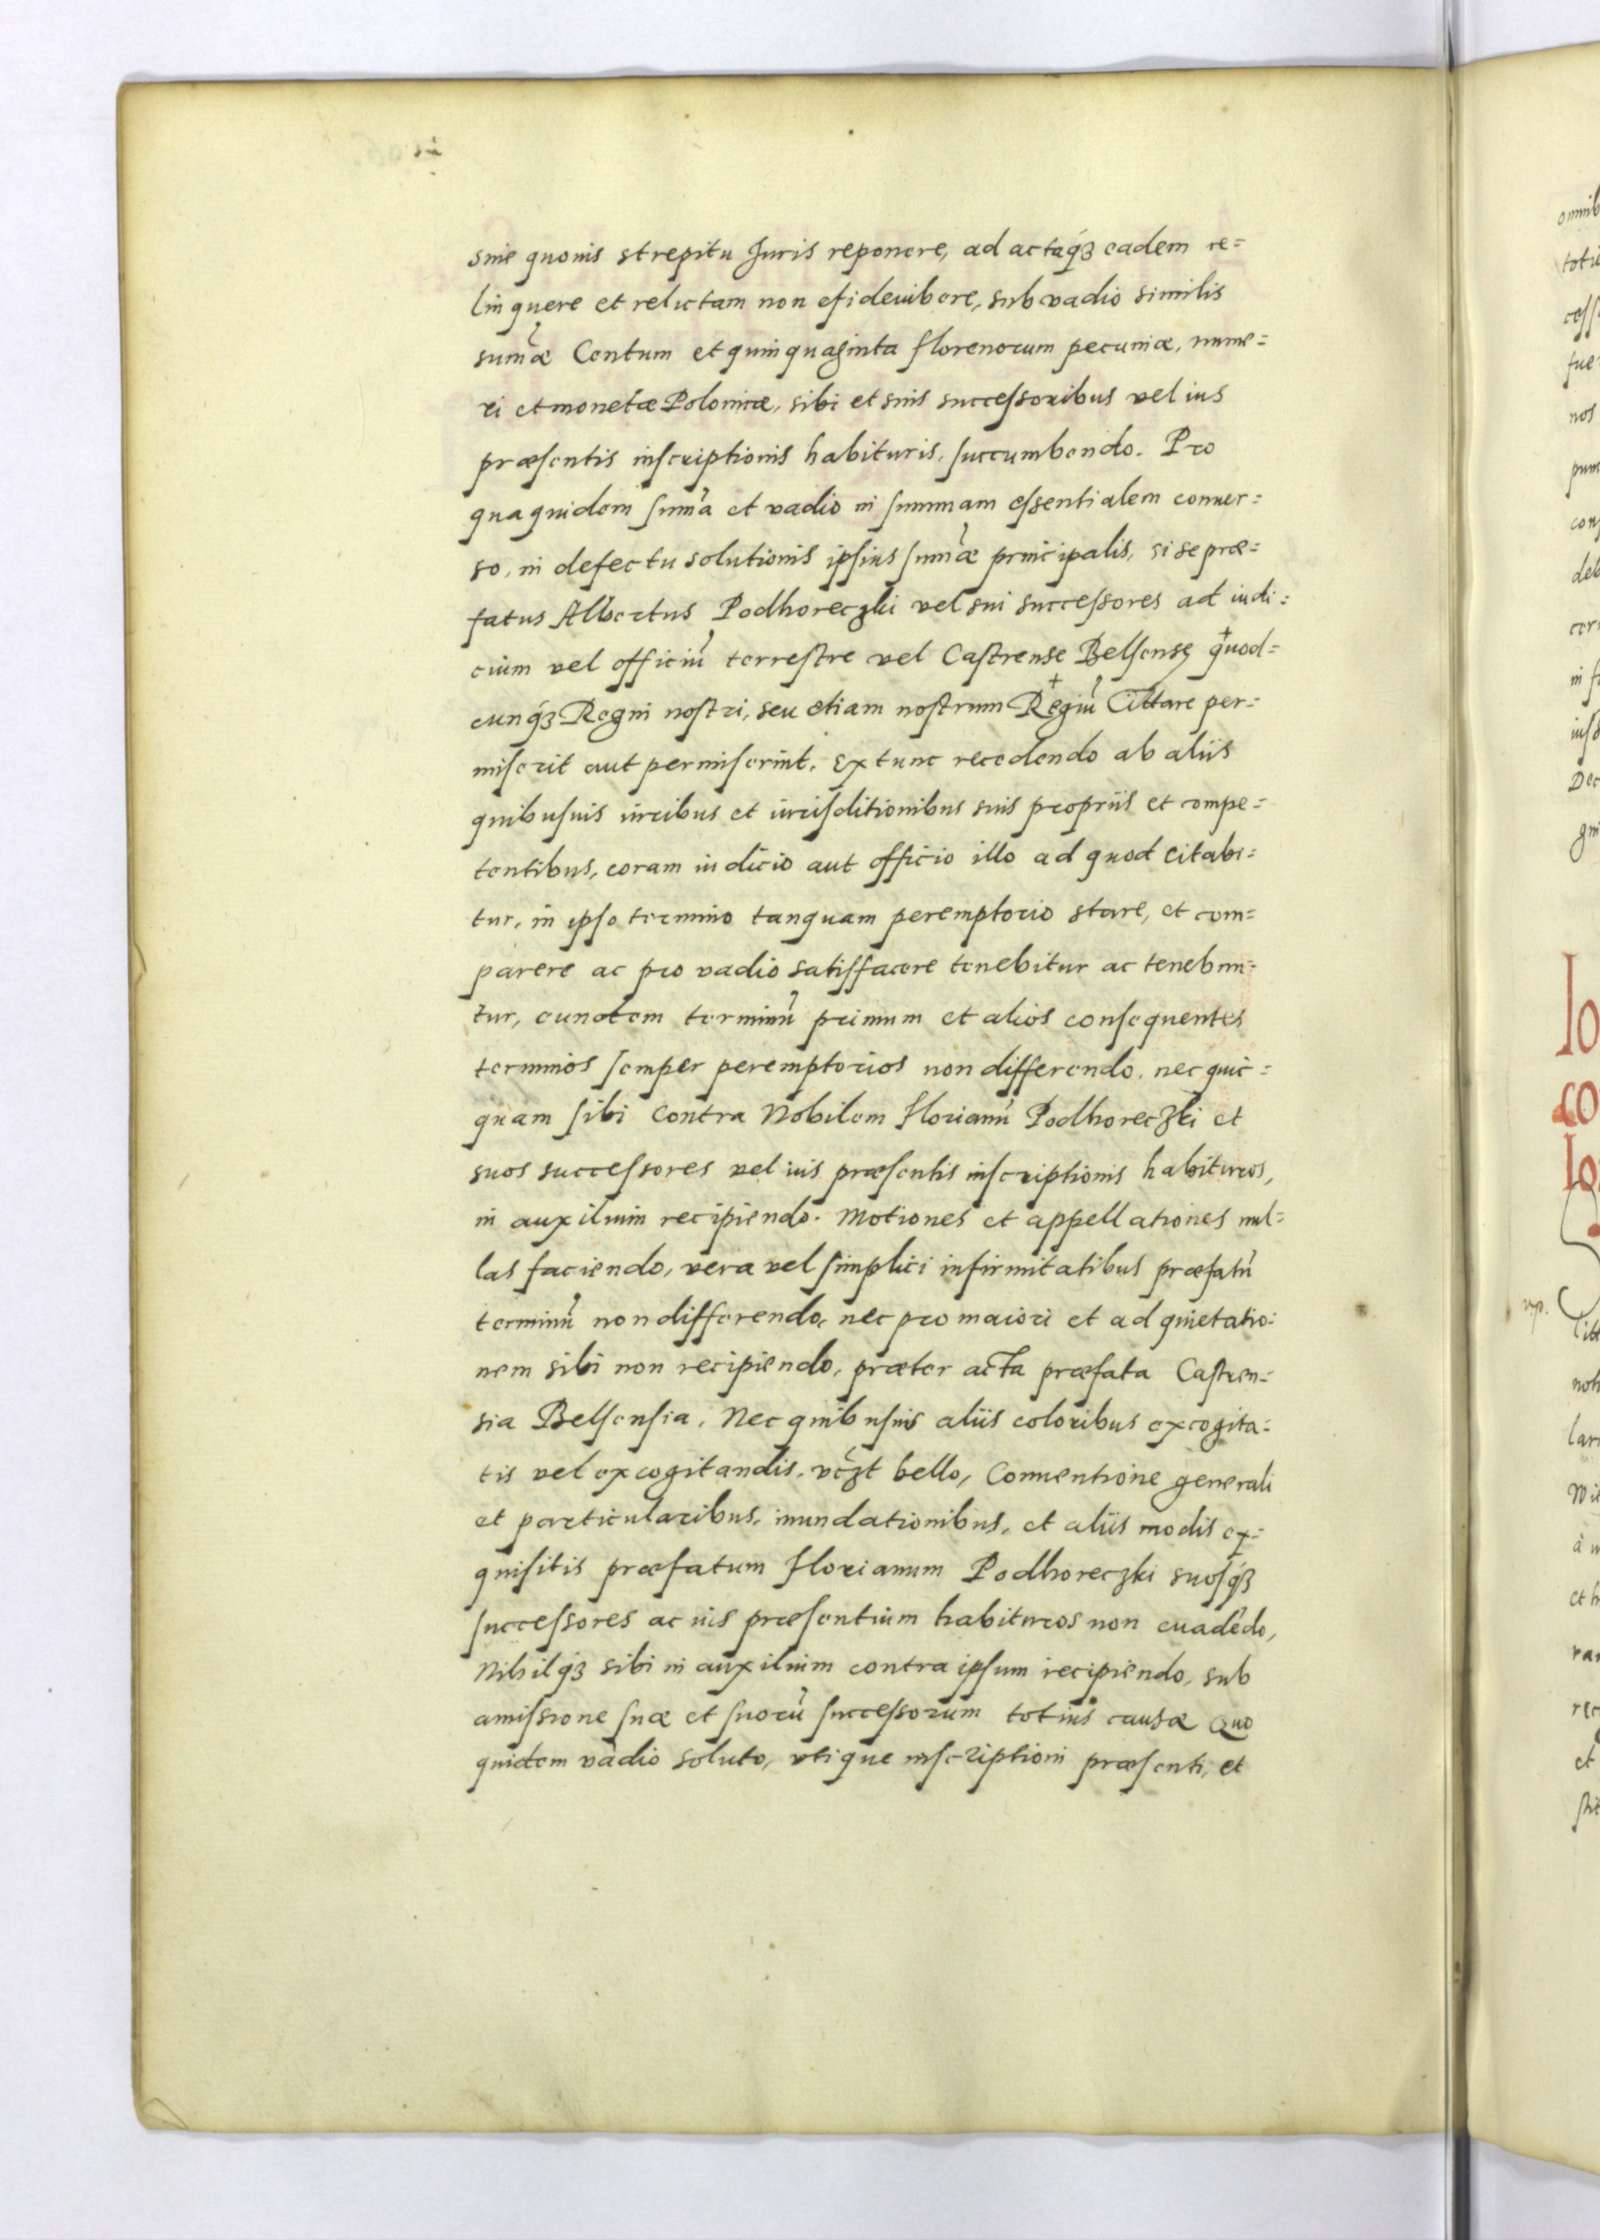 sine quouis strepitu Juris reponere, ad actaq́ꝫ eadem re=
linquere et relictam non efideiubere, sub vadio similis
sum̃æ Centum et quinquaginta florenorum pecuniæ, nume=
ri et monetæ Polonicæ, sibi et suis successoribus vel ius
præsentis inscriptionis habituris, succumbendo. Pro
qua quidem sum̃a et vadio in summam essentialem conuer=
so, in defectu solutionis ipsius sum̃æ principalis, si se præ=
fatus Albertus Podhoreczki vel sui successores ad iudi=
cium vel officiũ terrestre vel Castrense Belsense quod=
cunq́ꝫ Regni nostri, seu etiam nostrum Regiũ Cittare per=
miserit aut permiserint. Extunc recedendo ab aliis
quibusuis iuribus et iurisditionibus suis propriis et compe=
tentibus, coram iudicio aut officio illo ad quod citabi=
tur, in ipso termino tanquam peremptorio stare, et com=
parere ac pro vadio satisfacere tenebitur ac tenebun=
tur, eundem terminũ primum et alios consequentes
terminos semper peremptorios non differendo, nec quic=
quam sibi contra Nobilem Florianũ Podhoreczki et
suos successores vel ius præsentis inscriptionis habituros,
in auxilium recipiendo. Motiones et appellationes nul=
las faciendo, vera vel simplici infirmitatibus præfatũ
terminũ non differendo, nec pro maiori et ad quietatio=
nem sibi non recipiendo, præter acta præfata Castren=
sia Belsensia. Nec quibusuis aliis coloribus excogita=
tis vel excogitandis, vcꝫt bello, Conuentione generali
et particularibus, inundationibus, et aliis modis ex=
quisitis præfatum Florianum Podhoreczki suosq́ꝫ
successores ac ius præsentium habituros non euadẽdo,
Nihilq́ꝫ sibi in auxilium contra ipsum recipiendo, sub
amissione suæ et suorũ successorum totius causæ Quo
quidem vadio soluto, vtique inscriptioni præsenti, et